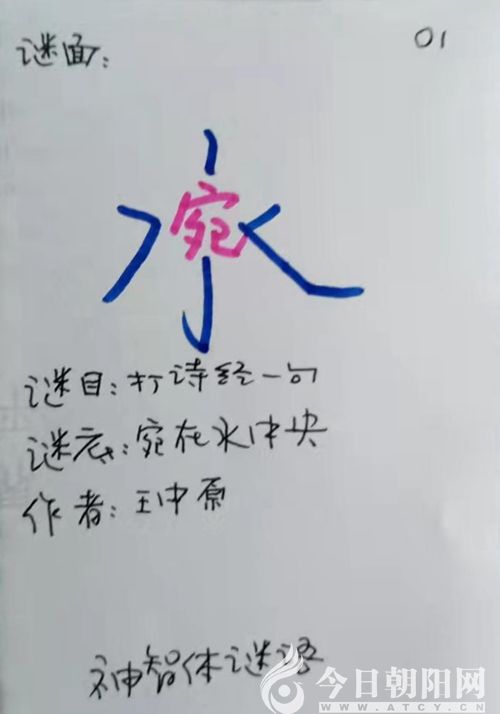 谜面: 01
水
宛
谜目:打诗经一句
谜底:宛在水中央
作者:王中原
神智体谜语
今日朝阳网
WWW.ATCY.CN